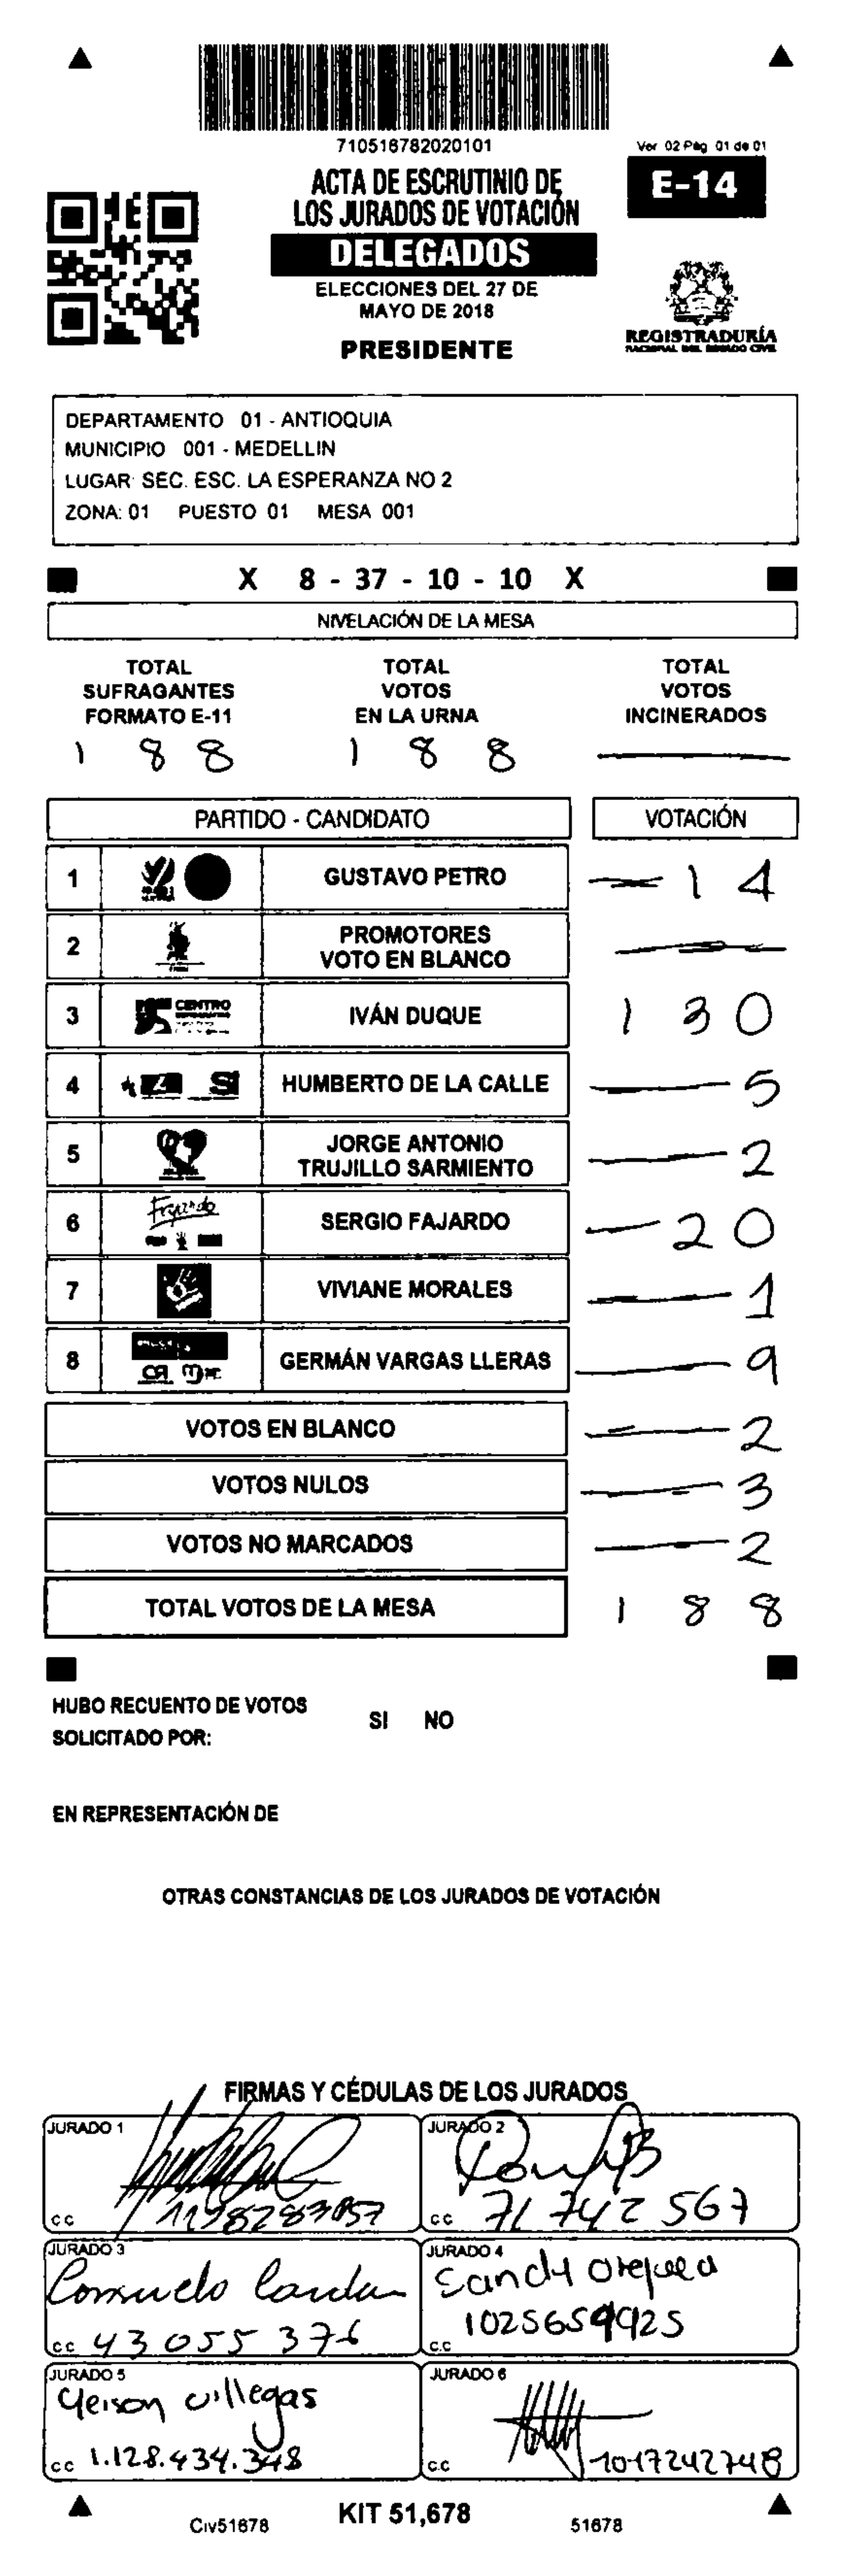 710516782020101
Ver 02 Pág 01 de 01
ACTA DE ESCRUTINIO DE
LOS JURADOS DE VOTACIÓN
E-14
DELEGADOS
ELECCIONES DEL 27 DE
MAYO DE 2018
PRESIDENTE
REGISTRADURÍA
NACIONAL DEL ESTADO CIVIL
DEPARTAMENTO 01 - ANTIOQUIA
MUNICIPIO 001 - MEDELLIN
LUGAR: SEC. ESC. LA ESPERANZA NO 2
ZONA: 01 PUESTO 01 MESA 001
X 8 - 37 - 10 - 10 X
NIVELACIÓN DE LA MESA
TOTAL SUFRAGANTES FORMATO E-11
TOTAL VOTOS EN LA URNA
TOTAL VOTOS INCINERADOS
1 8 8 1 8 8 —
PARTIDO - CANDIDATO VOTACIÓN
1 GUSTAVO PETRO — 1 4
2 PROMOTORES VOTO EN BLANCO —
3 CENTRO IVÁN DUQUE 1 3 0
4 SI HUMBERTO DE LA CALLE — 5
5 JORGE ANTONIO TRUJILLO SARMIENTO — 2
6 Fajardo SERGIO FAJARDO — 2 0
7 VIVIANE MORALES — 1
8 GERMÁN VARGAS LLERAS — 9
VOTOS EN BLANCO — 2
VOTOS NULOS — 3
VOTOS NO MARCADOS — 2
TOTAL VOTOS DE LA MESA 1 8 8
HUBO RECUENTO DE VOTOS SI NO
SOLICITADO POR:
EN REPRESENTACIÓN DE
OTRAS CONSTANCIAS DE LOS JURADOS DE VOTACIÓN
FIRMAS Y CÉDULAS DE LOS JURADOS
JURADO 1
cc
JURADO 2
cc 71 742 567
JURADO 3
Consuelo
cc 43 055 376
JURADO 4
Sandy
c.c 1025659925
JURADO 5
Yeison Villegas
cc 1.128.434.348
JURADO 6
c.c 1017242748
Civ51678
KIT 51,678
51678